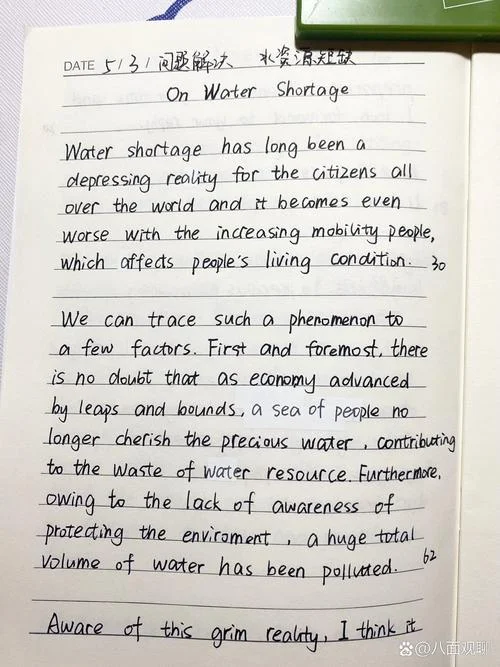 DATE 5/3/ 问题解决 水资源短缺
On Water Shortage
Water shortage has long been a
depressing reality for the citizens all
over the world and it becomes even
worse with the increasing mobility people,
which affects people's living condition. 30
We can trace such a phenomenon to
a few factors. First and foremost, there
is no doubt that as economy advanced
by leaps and bounds, a sea of people no
longer cherish the precious water, contributing
to the waste of water resource. Furthermore,
owing to the lack of awareness of
protecting the enviroment, a huge total
volume of water has been polluted. 62
Aware of this grim reality, I think it
@八面观聊